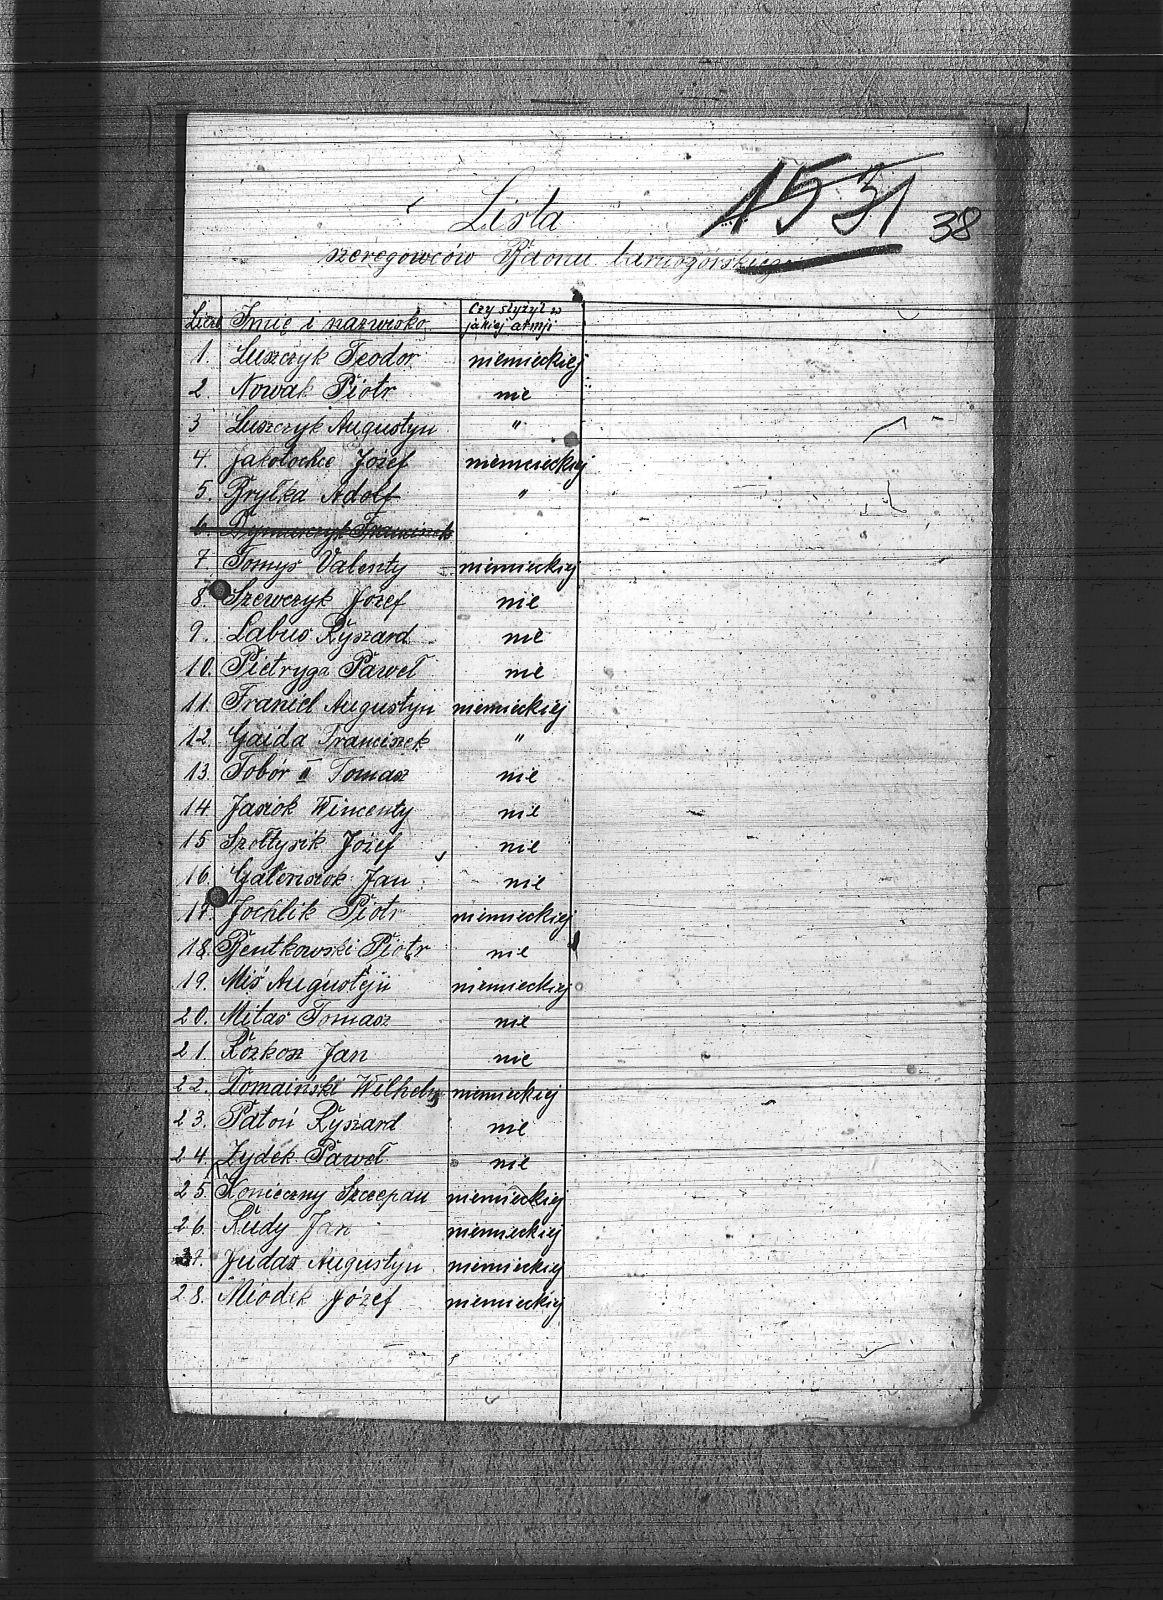 1531
38
Lista
szeregowców Baonu tarnogórskiego
Liczb Imię i nazwisko Czy słyżył w jakiej armji
1. Luszczyk Teodor niemieckiej
2 Nowak Piotr nie
3 Luszczyk Augustyn "
4. Józef niemieckiej
5. Bryłka Adolf "
6. Franciszek
7. Tomys Valenty niemieckiej
8. Szewczyk Józef nie
9. Labus Ryszard nie
10. Pietryga Paweł nie
11. Franiel Augustyn niemieckiej
12. Gaida Franciszek "
13. Tobór II Tomasz nie
14 Jasiok Wincenty nie
15 Szołtysik Józef nie
16. Jan nie
17. Jochlik Piotr niemieckiej
18. Bentkowski Piotr nie
19. Miś Augustyn niemieckiej
20. Mitas Tomasz nie
21. Rozkosz Jan nie
22. Domaiński Wilhelm niemieckiej
23. Patoń Ryszard nie
24. Zydek Paweł nie
25. Konieczny Szczepan niemieckiej
26. Rudy Jan niemieckiej
27. Judas Augustyn niemieckiej
28. Miodek Józef niemieckiej